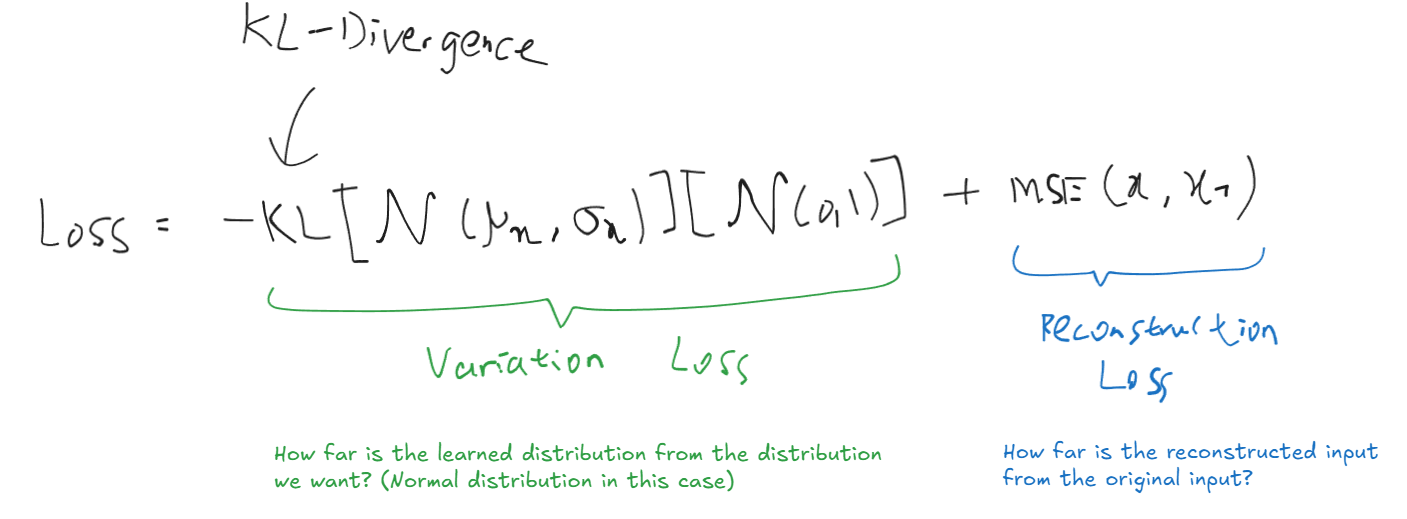 KL-Divergence
Loss = -KL[N(μₓ, σₓ)][N(0,1)] + MSE(x, x₁)
Variation Loss
Reconstruction
Loss
How far is the learned distribution from the distribution
we want? (Normal distribution in this case)
How far is the reconstructed input
from the original input?